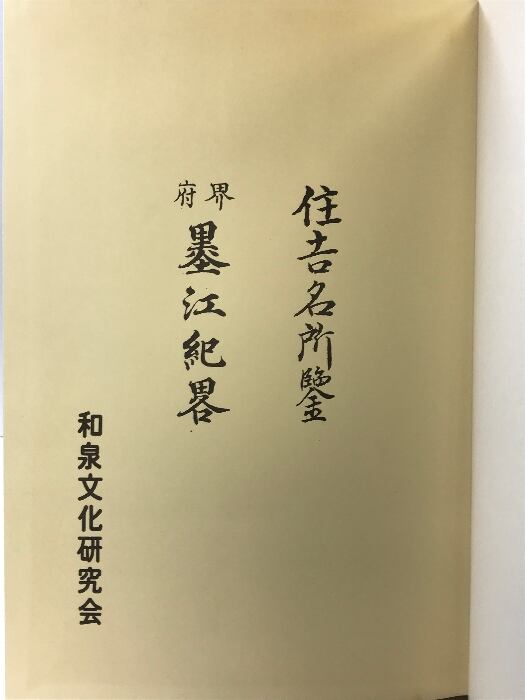 住吉名所鑒
界府
墨江紀畧
和泉文化研究会